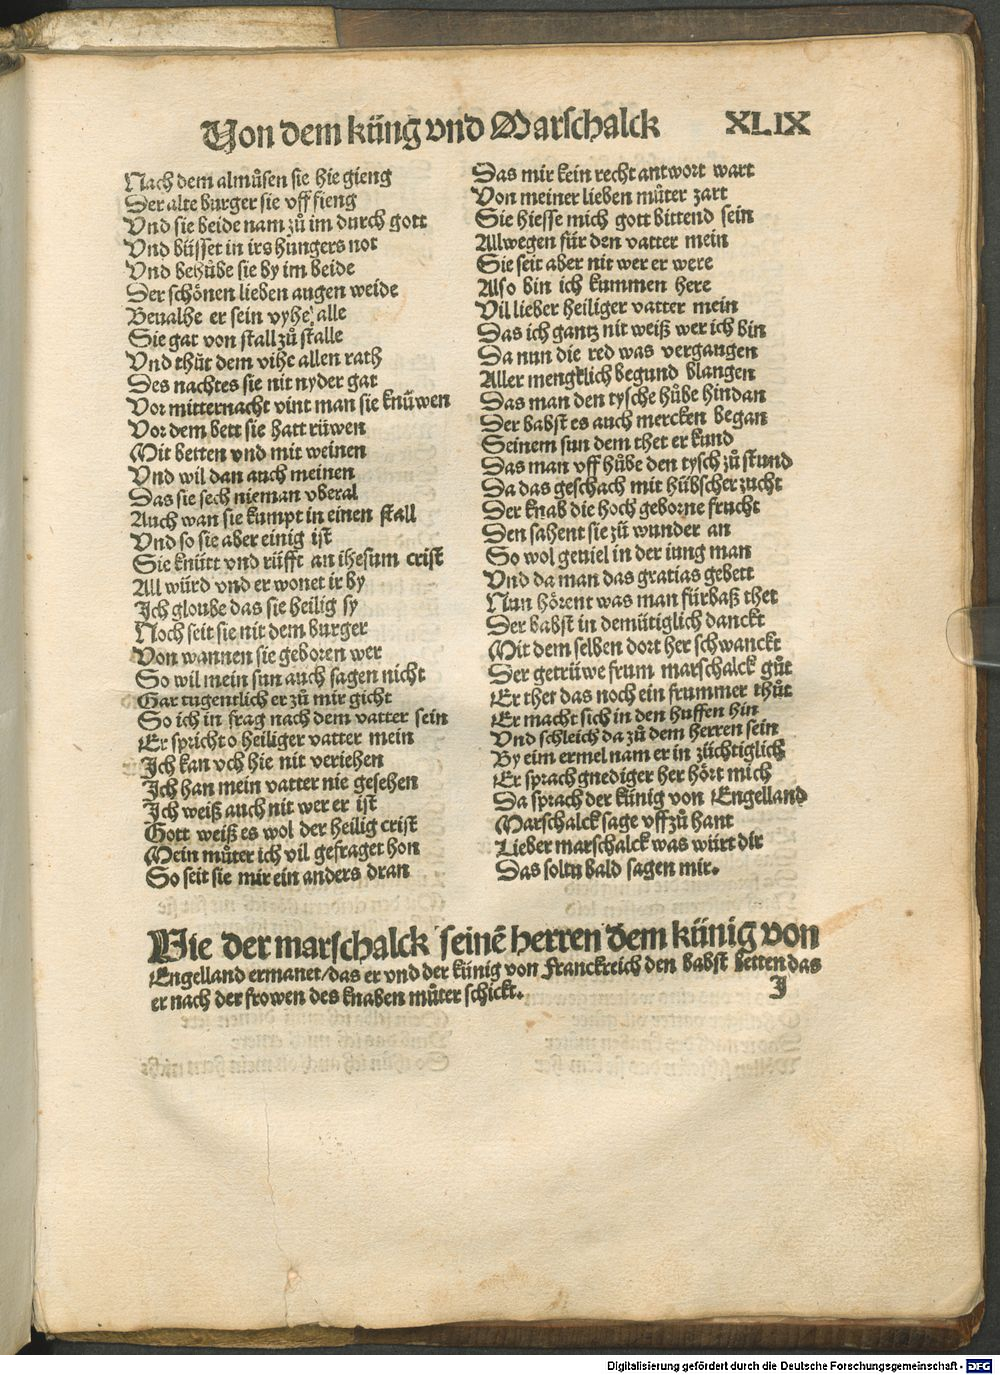 Von dem küng vnd Marschalck XLIX
Nach dem almůsen sie hie gieng
Der alte burger sie vff fieng
Vnd sie beide nam zů im durch gott
Vnd büsset in irs hungers not
Vnd behůbe sie by im beide
Der schönen lieben augen weide
Beualhe er sein vyhe alle
Sie gat von stall zů stalle
Vnd thůt dem vihe allen rath
Des nachtes sie nit nyder gat
Vor mitternacht vint man sie knüwen
Vor dem bett sie hatt rüwen
Mit betten vnd mit weinen
Vnd wil dan auch meinen
Das sie sech nieman vberal
Auch wan sie kumpt in einen stall
Vnd so sie aber einig ist
Sie knütt vnd rüfft an ihesum crist
All würd vnd er wonet ir by
Ich gloube das sie heilig sy
Noch seit sie nit dem burger
Von wannen sie geboren wer
So wil mein sun auch sagen nicht
Gar tugentlich er zů mir gicht
So ich in frag nach dem vatter sein
Er spricht o heiliger vatter mein
Ich kan vch hie nit veriehen
Ich han mein vatter nie gesehen
Ich weiß auch nit wer er ist
Gott weiß es wol der heilig crist
Mein můter ich vil gefraget hon
So seit sie mir ein anders dran
Das mir kein recht antwort wart
Von meiner lieben můter zart
Sie hiesse mich gott bittend sein
Allwegen für den vatter mein
Sie seit aber nit wer er were
Also bin ich kummen here
Vil lieber heiliger vatter mein
Das ich gantz nit weiß wer ich bin
Da nun die red was vergangen
Aller mengklich begund blangen
Das man den tysche hůbe hindan
Der babst es auch mercken began
Seinem sun dem thet er kund
Das man vff hůbe den tysch zů stund
Da das geschach mit hübscher zucht
Der knab die hoch geborne frucht
Den sahent sie zů wunder an
So wol geuiel in der iung man
Vnd da man das gratias gebett
Nun hörent was man fürbaß thet
Der babst in demütiglich danckt
Mit dem selben dort her schwanckt
Der getrüwe frum marschalck gůt
Er thet das noch ein frummer thůt
Er macht sich in den huffen hin
Vnd schleich da zů dem herren sein
By eim ermel nam er in züchtiglich
Er sprach gnediger her hört mich
Da sprach der künig von Engelland
Marschalck sage vff zů hant
Lieber marschalck was würt dir
Das soltu bald sagen mir.
Wie der marschalck seinē herren dem künig von
Engelland ermanet/das er vnd der künig von Franckreich den babst betten das
er nach der frowen des knaben můter schickt.
I
Digitalisierung gefördert durch die Deutsche Forschungsgemeinschaft - DFG